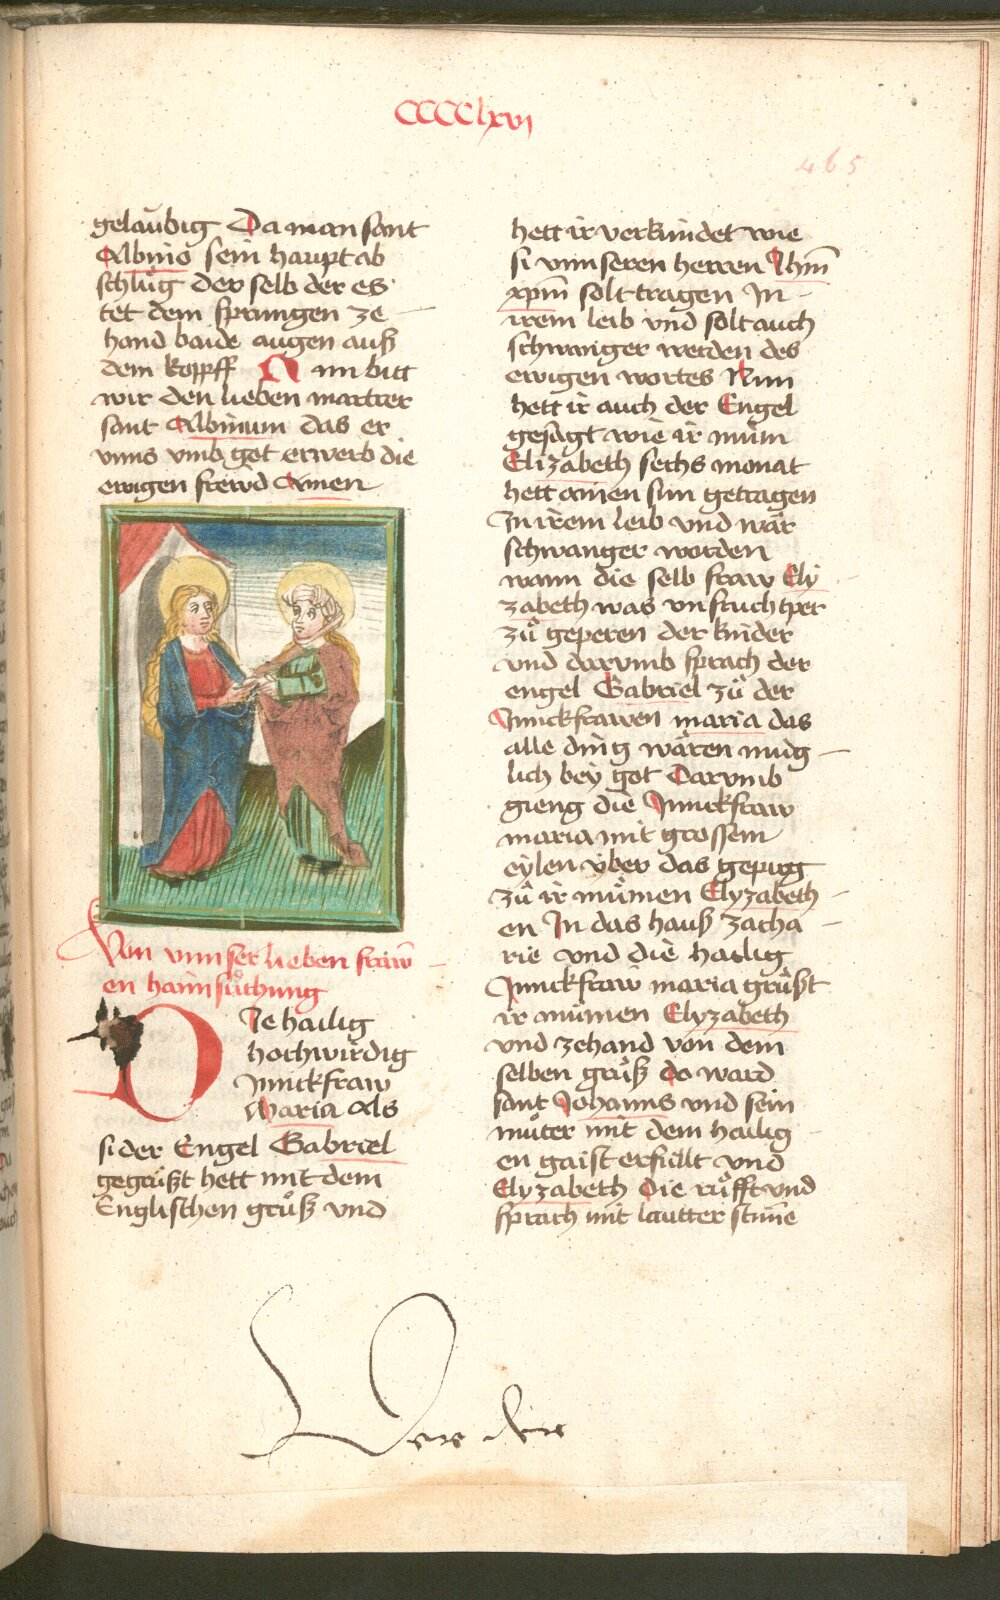 CCCClxvj
465
gelaubig Da man sant
Albino sein haupt ab
schlůg der selb der es
tet dem sprungen ze
hand baide augen auß
dem kopff Nun bitt
wir den lieben martrer
sant Albinum das er
vnns vmb got erwerb die
ewigen frewd Amen
Von vnnser lieben fraw̄
en haimsůchung
DIe hailig
hochwirdig
Junckfraw
Maria Als
si der Engel Gabriel
gegrůßt hett mit dem
Englischen grůß vnd
hett ir verkündet wie
si vnnseren herren Jhm̄
xpm̄ solt tragen In
irem leib vnd solt auch
schwanger werden des
ewigen wortes Nun
hett ir auch der Engel
gesagt wie ir mům
Elizabeth sechs monat
hett ainen sun getragen
In irem leib vnd wär
schwanger worden
wann die selb fraw Ely
zabeth was vnfruchtper
zů geperen der kinder
vnd darvmb sprach der
engel Gabriel zů der
Junckfrawen maria das
alle ding wären mug
lich bey got Darvmb
gieng die Junckfraw
maria mit grossem
eylen vber das gepirg
zů ir můmen Elyzabeth
en In das hauß zacha
rie vnd die hailig
Junckfraw maria grůßt
ir můmen Elyzabeth
vnd zehand von dem
selben grůß do ward
sant Johanns vnd sein
můter mit dem hailig
en gaist erfüllt vnd
Elyzabeth Die růfft vnd
sprach mit lautter stim̄e
Der